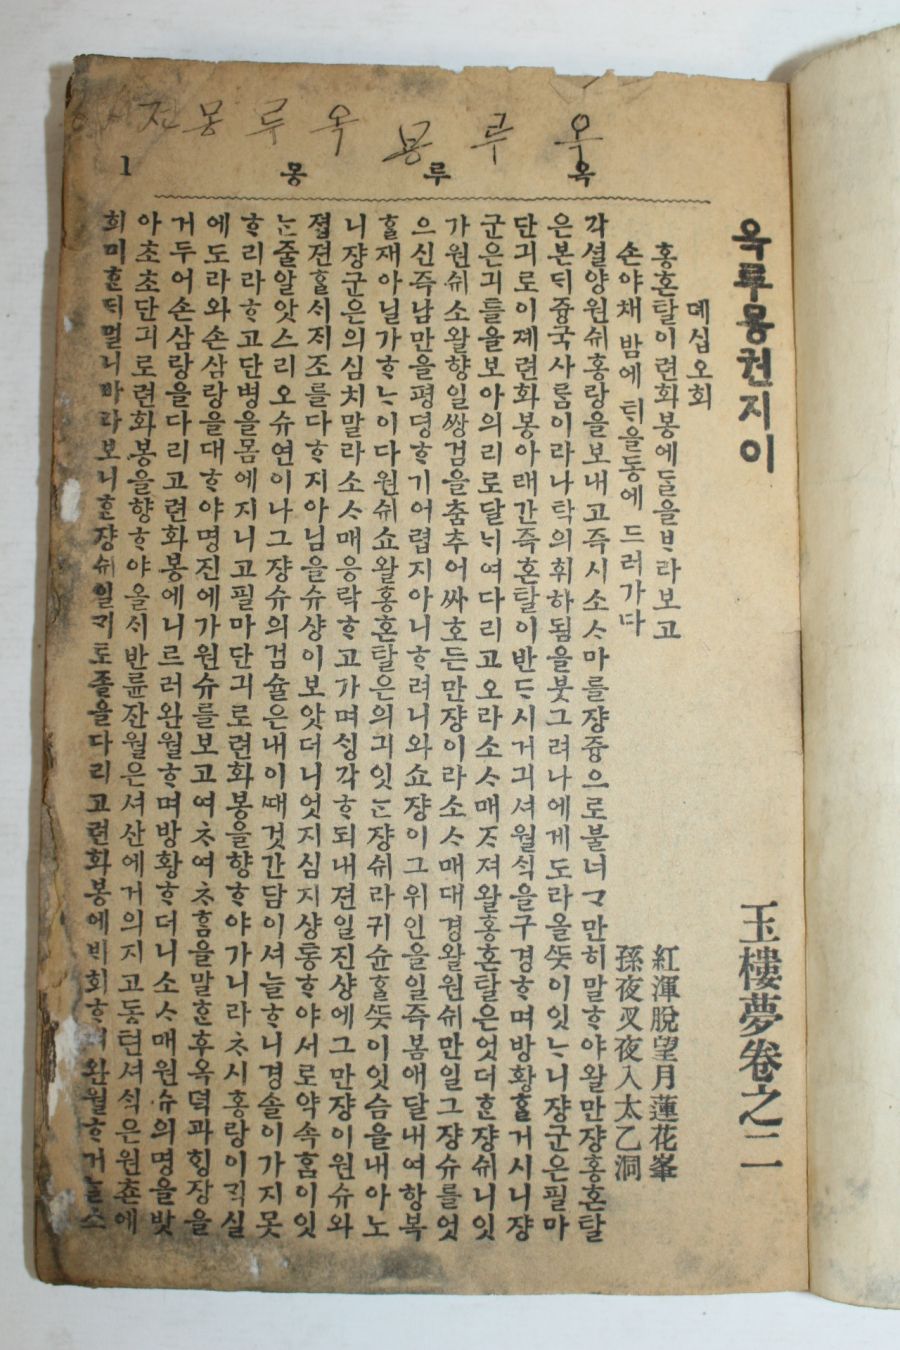 옥루몽
옥루몽전
옥루몽
1
옥루몽권지이 玉樓夢卷之二
뎨십오회
홍혼탈이련화봉에ᄃᆞᆯ을ᄇᆞ라보고 紅渾脫望月蓮花峯
손야채밤에ᄐᆡ을동에드러가다 孫夜叉夜入太乙洞
각셜양원슈ㅣ홍랑을보내고즉시소ᄉᆞ마를쟝즁으로불너ᄀᆞ만히말ᄒᆞ야왈만쟝홍혼탈
은본ᄃᆡ즁국사ᄅᆞᆷ이라나탁의휘하됨을붓그려나에게도라올ᄯᅳᆺ이잇ᄂᆞ니쟝군은필마
단긔로이졔련화봉아래간즉혼탈이반ᄃᆞ시거긔셔월ᄉᆡᆨ을구경ᄒᆞ며방황ᄒᆞᆯ거시니쟝
군은긔틀을보아의리로달ᄂᆡ여다리고오라소ᄉᆞ매ᄌᆞ져왈홍혼탈은엇더ᄒᆞᆫ쟝슈ㅣ니잇
가원슈ㅣ소왈향일쌍검을춤추어싸호든만쟝이라소ᄉᆞ매대경왈원슈ㅣ만일그쟝슈를엇
으신즉남만을평뎡ᄒᆞ기어렵지아니ᄒᆞ려니와쇼쟝이그위인을일즉봄애달내여항복
ᄒᆞᆯ재아닐가ᄒᆞᄂᆞ이다원슈ㅣ쇼왈홍혼탈은의긔잇ᄂᆞᆫ쟝슈ㅣ라귀슌ᄒᆞᆯᄯᅳᆺ이잇슴을내아노
니쟝군은의심치말라소ᄉᆞ매응락ᄒᆞ고가며ᄉᆡᆼ각ᄒᆞ되내젼일진샹에그만쟝이원슈와
졉젼ᄒᆞᆯ서저조를다ᄒᆞ지아님을슈샹이보앗더니엇지심지샹통ᄒᆞ야서로약속ᄒᆞᆷ이잇
ᄂᆞᆫ줄알앗스리오슈연이나그쟝슈의검슐은내이때것간담이셔늘ᄒᆞ니경솔이가지못
ᄒᆞ리라ᄒᆞ고단병을몸에지니고필마단긔로련화봉을향ᄒᆞ야가니라ᄎᆞ시홍랑이ᄀᆡᆨ실
에도라와손삼랑을대ᄒᆞ야명진에가원슈를보고여ᄎᆞ여ᄎᆞᄒᆞᆷ을말ᄒᆞᆫ후옥뎍과ᄒᆡᆼ장을
거두어손삼랑을다리고련화봉에니르러완월ᄒᆞ며방황ᄒᆞ더니소ᄉᆞ매원슈의명을밧
아초초단긔로련화봉을향ᄒᆞ야올서반륜잔월은셔산에거의지고동텬셔ᄉᆡᆨ은원촌에
희미ᄒᆞᆫᄃᆡ멀니바라보니ᄒᆞᆫ쟝슈ㅣ일ᄀᆡ토졸을다리고련화봉에ᄇᆡ회ᄒᆞ며완월ᄒᆞ거늘소